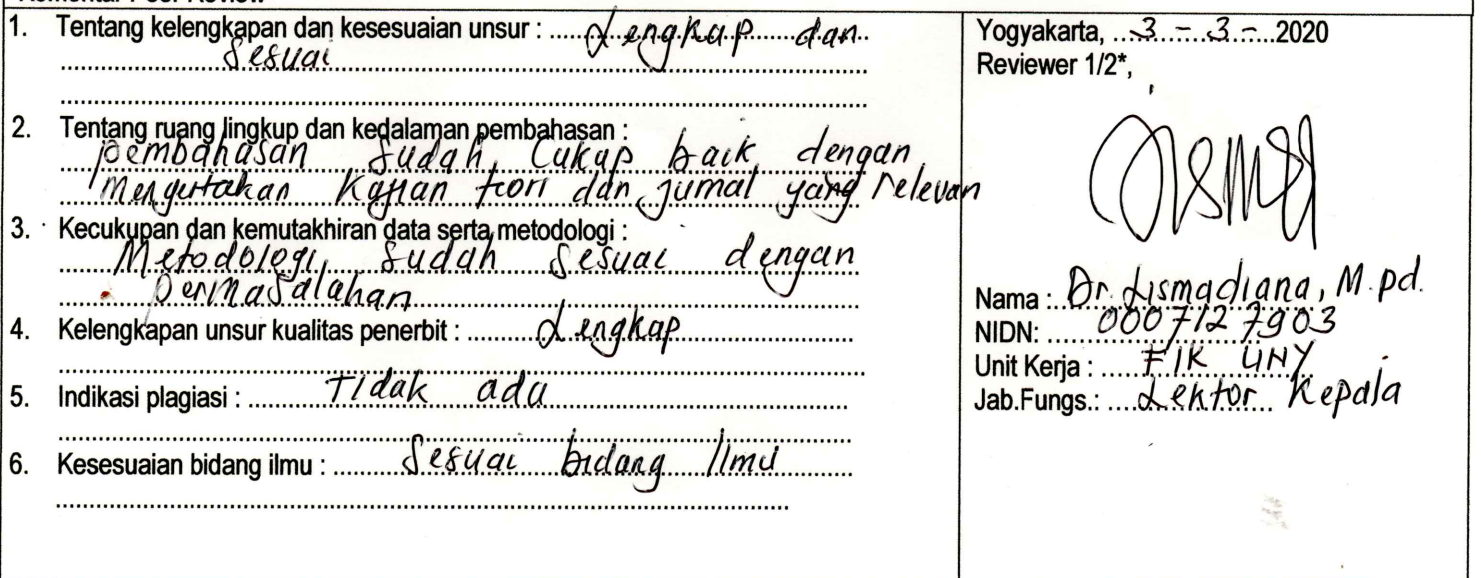 1. Tentang kelengkapan dan kesesuaian unsur : Lengkap dan
sesuai
2. Tentang ruang lingkup dan kedalaman pembahasan :
pembahasan sudah cukup baik dengan
kajian teori dan jurnal yang relevan
3. Kecukupan dan kemutakhiran data serta metodologi :
Metodologi sudah sesuai dengan
permasalahan
4. Kelengkapan unsur kualitas penerbit : Lengkap
5. Indikasi plagiasi : Tidak ada
6. Kesesuaian bidang ilmu : Sesuai bidang Ilmu
Yogyakarta, 3 - 3 - 2020
Reviewer 1/2*,
Nama : Dr. Lismadiana, M.pd.
NIDN: 0007127903
Unit Kerja : FIK UNY
Jab.Fungs.: Lektor Kepala